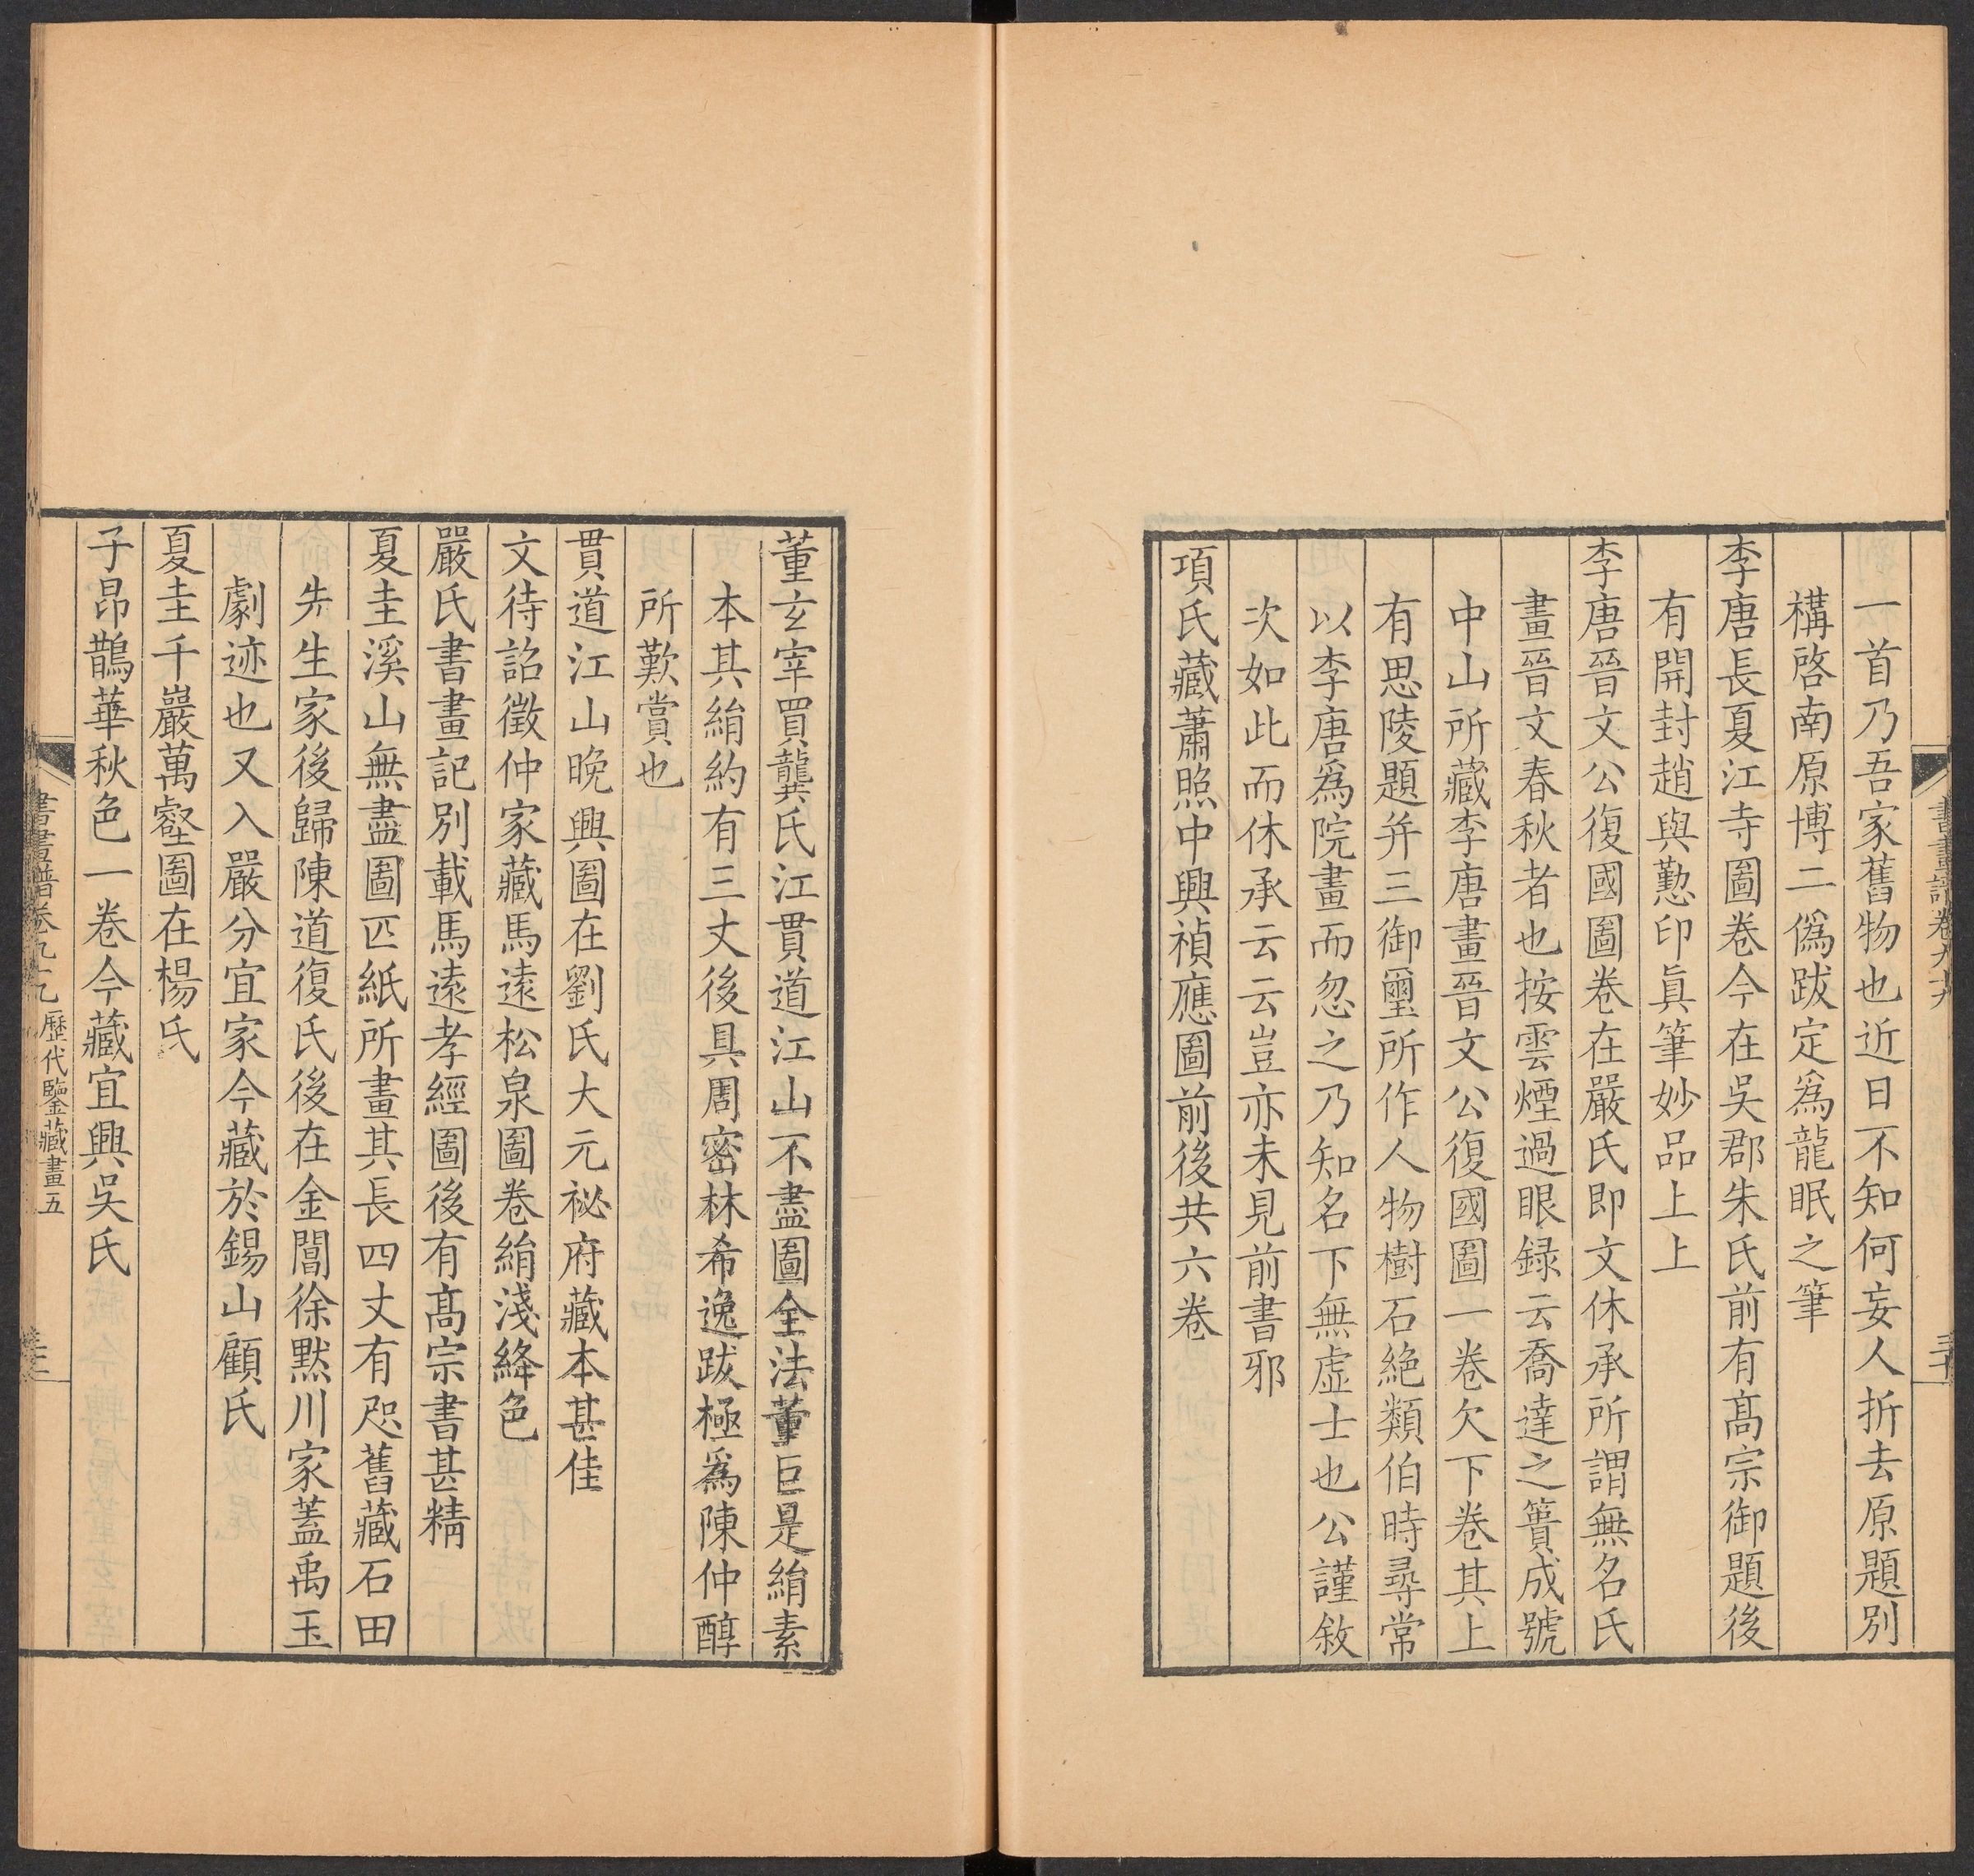 一首乃吾家舊物也近日不知何妄人折去原題別
構啓南原博二僞跋定爲龍眠之筆
李唐長夏江寺圖卷今在吳郡朱氏前有髙宗御題後
有開封趙與懃印眞筆妙品上上
李唐晉文公復國圖卷在嚴氏即文休承所謂無名氏
畫晉文春秋者也按雲煙過眼録云喬達之簣成號
中山所藏李唐畫晉文公復國圖一卷欠下卷其上
有思陵題并三御璽所作人物樹石絶類伯時尋常
以李唐爲院畫而忽之乃知名下無虛士也公謹敘
次如此而休承云云豈亦未見前書邪
項氏藏蕭照中興禎應圖前後共六卷
董玄宰買龔氏江貫道江山不盡圖全法董巨是絹素
本其絹約有三丈後具周密林希逸跋極爲陳仲醇
所歎賞也
貫道江山晚興圖在劉氏大元祕府藏本甚佳
文待詔徵仲家藏馬遠松泉圖卷絹淺絳色
嚴氏書畫記別載馬遠孝經圖後有髙宗書甚精
夏圭溪山無盡圖匹紙所畫其長四丈有咫舊藏石田
先生家後歸陳道復氏後在金閶徐默川家蓋禹玉
劇迹也又入嚴分宜家今藏於錫山顧氏
夏圭千巖萬壑圖在楊氏
子昂鵲華秋色一卷今藏宜興吳氏
書畫譜卷九十九 歷代鑒藏畫五